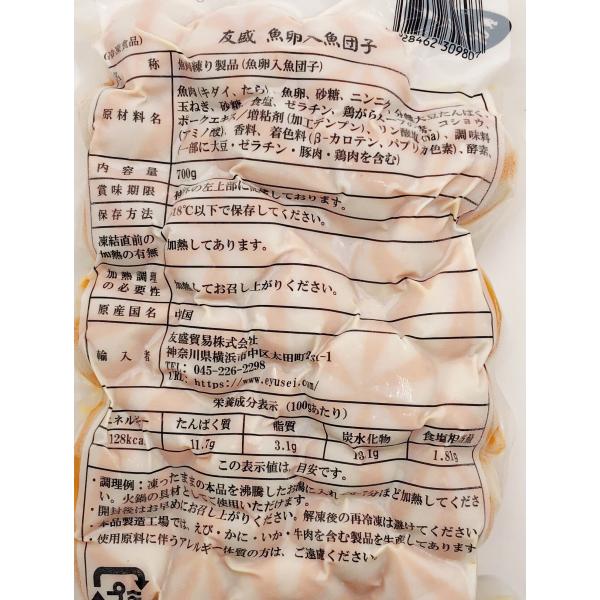 友盛 魚卵入魚団子
28462 30980
(冷凍食品)
名 称 魚肉練り製品(魚卵入魚団子)
原材料名
魚肉(キダイ、たら)、魚卵、砂糖、ニンニク、大豆たんぱく、
玉ねぎ、砂糖、食塩、ゼラチン、鶏がら コショウ、
ポークエキス/増粘剤(加工デンプン)、リン酸塩(Na)、調味料
(アミノ酸)、香料、着色料(β-カロテン、パプリカ色素)、酵素、
(一部に大豆・ゼラチン・豚肉・鶏肉を含む)
内容量 700g
賞味期限 の左上部に しております。
保存方法 18℃以下で保存してください。
凍結直前の
加熱の有無 加熱してあります。
加熱調理
の必要性 加熱してお召し上がりください。
原産国名 中国
輸入者
友盛貿易株式会社
神奈川県横浜市中区太田町
TEL: 045-226-2298
URL: https://www.eyusei.com/
栄養成分表示(100gあたり)
エネルギー たんぱく質 脂質 炭水化物 食塩相当量
128kca 11.7g 3.1g 13.1g 1.81g
この表示値は、目安です。
・調理例:凍ったままの本品を沸騰したお湯に入れ ほど加熱してくださ
い。火鍋の具材としてご使用いただけます。
・開封後はお早めにお召し上がりください。解凍後の再冷凍は避けてください
・本品製造工場では、えび・かに・いか・牛肉を含む製品を生産してあります
・使用原料に伴うアレルギー体質の方は、ご遠慮ください。
プラ